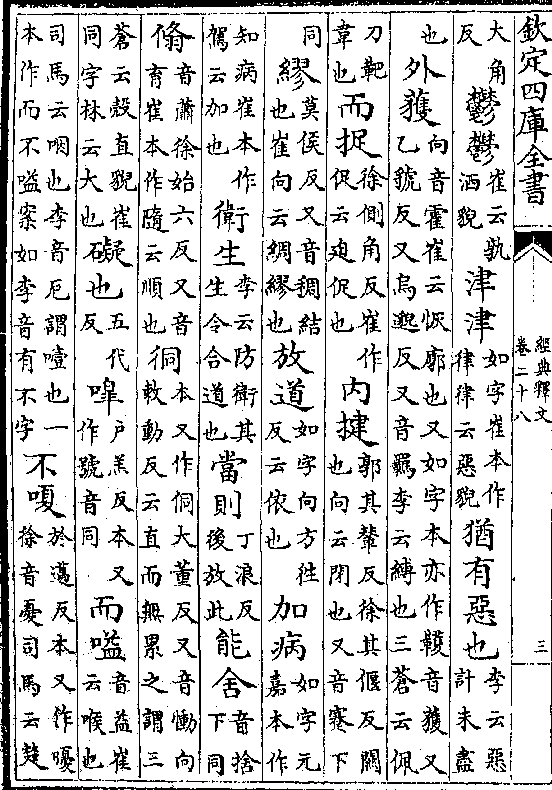 欽定四庫全書
經典釋文
卷二十八
三
大角反 鬱鬱 崔云孰洒貌 津津 如字崔本作律律云惡貌 猶有惡也 李云惡計未盡
也 外獲 向音霍崔云恢廓也又如字本亦作韄音獲又乙虢反又烏邈反又音羈李云縛也三蒼云佩
刀靶韋也 而捉 徐側角反崔作促云迫促也 内揵 郭其輦反徐其偃反關也向云閉也又音蹇下
同 繆 莫侯反又音稠結也崔向云綢繆也 放道 如字向方往反云依也 加病 如字元嘉本作
知病崔本作駕云加也 衛生 李云防衛其生令合道也 當則 丁浪反後放此 能舍 音捨下同
翛 音蕭徐始六反又音育崔本作隨云順也 㣚 本又作侗大董反又音慟向敕動反云直而無累之謂三
蒼云殼直貌崔同字林云大也 礙也 五代反 嘷 戶羔反本又作號音同 而嗌 音益崔云喉也
司馬云咽也李音厄謂噎也一本作而不嗌案如李音有不字 不嗄 於邁反本又作嚘徐音憂司馬云楚